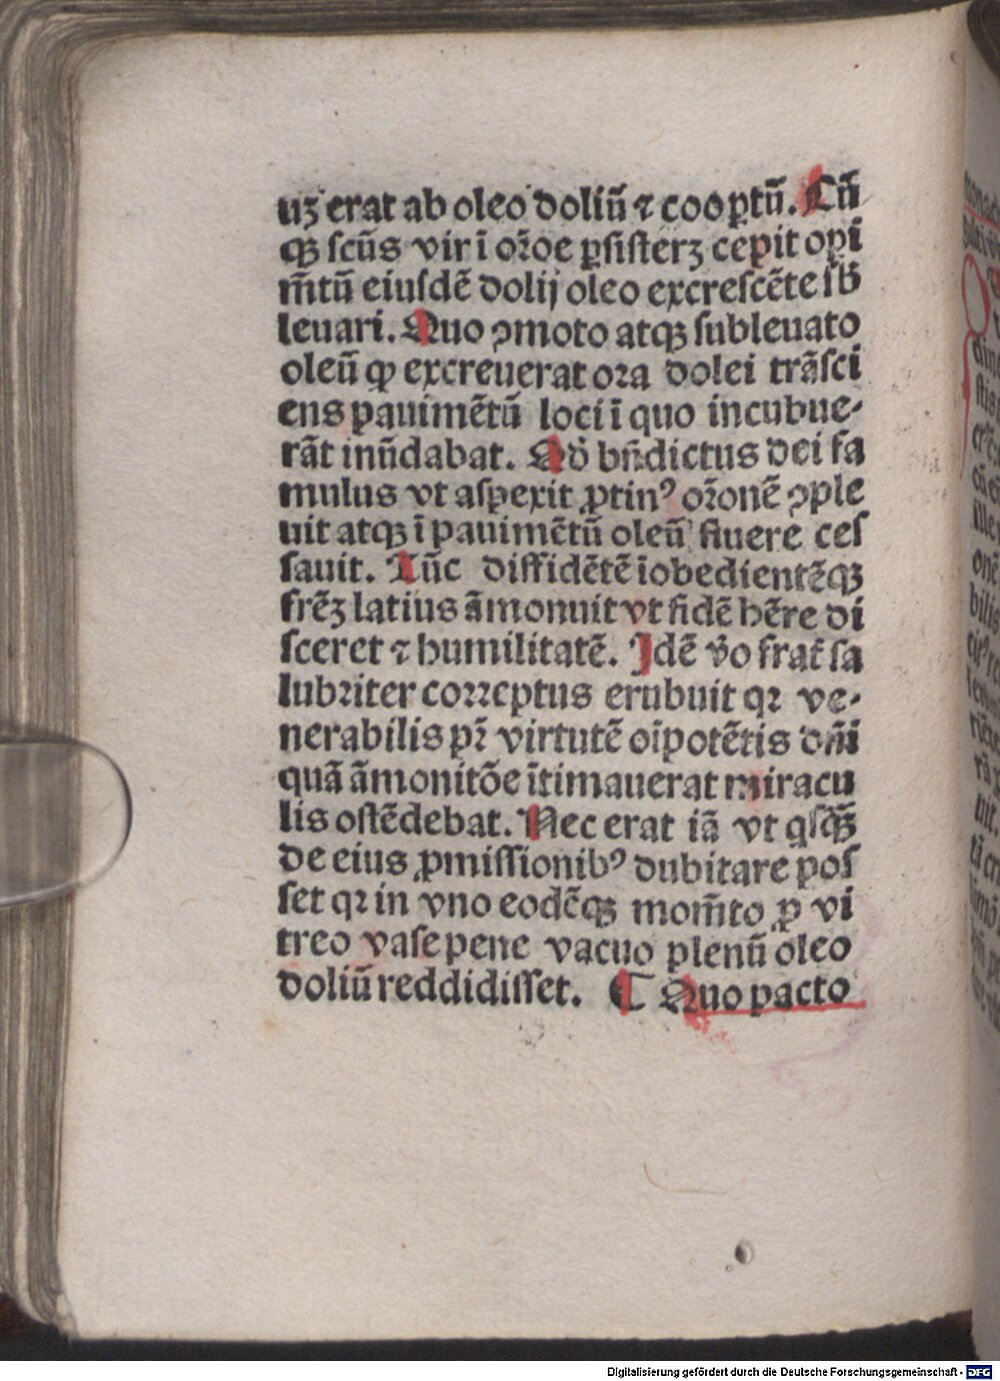 uꝫ erat ab oleo doliū ⁊ cooꝑtū. Cū
qꝫ scūs vir ī or̄oe ꝑsisterꝫ cepit opi
m̄tū eiusdē dolij oleo excrescēte sb̄
leuari. Quo ꝯmoto atqꝫ subleuato
oleū ꝙ excreuerat ora dolei trāsci
ens pauimētū loci ī quo incubue-
rāt inūdabat. Qd̓ bn̄dictus dei fa
mulus vt aspexit ꝓtinꝰ or̄onē ꝯple
uit atqꝫ ī pauimētū oleū fluere ces
sauit. Tūc diffidētē īobedientēqꝫ
frēꝫ latius āmonuit vt fidē hēre di
sceret ⁊ humilitatē. Idē v̓o frat̄ sa
lubriter correptus erubuit qꝛ ve-
nerabilis pr̄ virtutē oīpotētis dn̄i
quā āmonitōe ītimauerat miracu
lis ostēdebat. Nec erat iā vt qͥsqꝫ̄
de eius ꝓmissionibꝰ dubitare pos
set qꝛ in vno eodēqꝫ mom̄to ꝓ vi
treo vase pene vacuo plenū oleo
doliū reddidisset. ¶ Quo pacto
Digitalisierung gefördert durch die Deutsche Forschungsgemeinschaft - DFG